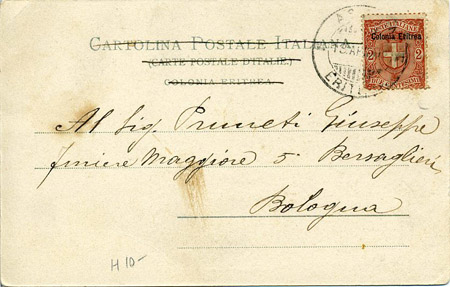 CARTOLINA POSTALE ITALIANA
(CARTE POSTALE D'ITALIE)
COLONIA ERITREA
POSTE ITALIANE
Colonia Eritrea
2 2
DUE CENTESIMI
Al Sig. Pruneti Giuseppe
furiere Maggiore 5 Bersaglieri
Bologna
H 10-